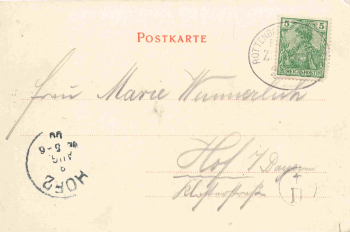 POSTKARTE
5
5
ROTTENB
Z
Frau Marie Wunnerlich
Hof i/ Bayern
Klosterstraße
HOF 2
AUG
5-6